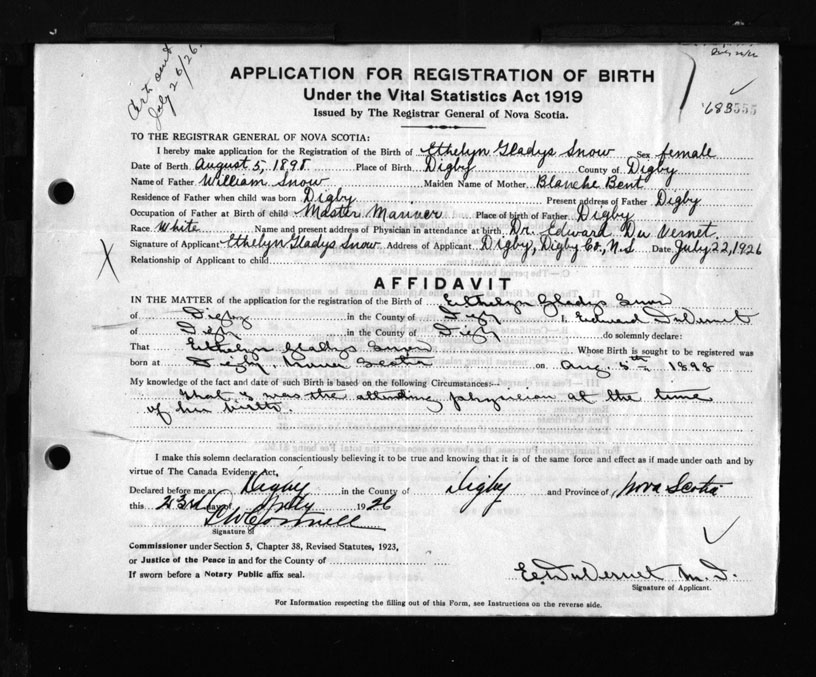 Cert. out
July 26/26.
APPLICATION FOR REGISTRATION OF BIRTH
Under the Vital Statistics Act 1919
Issued by The Registrar General of Nova Scotia.
683555
TO THE REGISTRAR GENERAL OF NOVA SCOTIA:
I hereby make application for the Registration of the Birth of Ethelyn Gladys Snow Sex female
Date of Birth August 5, 1898 Place of Birth Digby County of Digby
Name of Father William Snow Maiden Name of Mother Blanche Bent
Residence of Father when child was born Digby Present address of Father Digby
Occupation of Father at Birth of child Master Mariner Place of birth of Father Digby
Race White Name and present address of Physician in attendance at birth Dr. Edward Du Vernet
Signature of Applicant Ethelyn Gladys Snow Address of Applicant Digby, Digby Co., N.S Date July 22, 1926
Relationship of Applicant to child
X
AFFIDAVIT
IN THE MATTER of the application for the registration of the Birth of Ethelyn Gladys Snow
of Digby in the County of Digby I, Edward DuVernet
of Digby in the County of Digby do solemnly declare:
That Ethelyn Gladys Snow Whose Birth is sought to be registered was
born at Digby, Nova Scotia on Aug. 5th 1898
My knowledge of the fact and date of such Birth is based on the following Circumstances:—
That I was the attending physician at the time
of her birth.
I make this solemn declaration conscientiously believing it to be true and knowing that it is of the same force and effect as if made under oath and by
virtue of The Canada Evidence Act,
Declared before me at Digby in the County of Digby and Province of Nova Scotia
this 23rd day of July 1926
Signature of
Commissioner under Section 5, Chapter 38, Revised Statutes, 1923,
or Justice of the Peace in and for the County of
If sworn before a Notary Public affix seal.
E. DuVernet M.D.
Signature of Applicant.
For Information respecting the filling out of this Form, see Instructions on the reverse side.